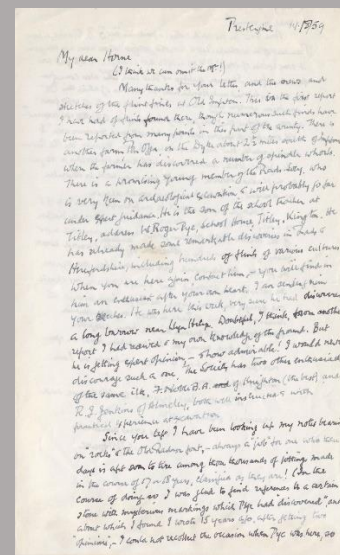 Presteigne
My dear Horne
(I think we can omit the "Mr"!)
Many thanks for your letter and the news and
sketches of the flint finds at Old Impson. This is the first report
I have had of flints found there, though numerous such finds have
been reported from many points in this part of the county. There is
another farm on the Dyke about 2½ miles
where the farmer has discovered a number of spindle whorls.
There is a promising young member of the Radn. Socy, who
is very keen on archaeological excavation & will probably go far
under expert guidance. He is the son of the school teacher at
Titley, address is Roger Pye, School House, Titley, Kington. He
has already made some remarkable discoveries in Rads &
Herefordshire, including hundreds of flints of various cultures.
When you are here again, contact him, - you will find in
him an enthusiast after your own heart. I am sending him
your sketches. He was here this week, very keen, he had discovered
a long barrow near Doubtful, I think, from another
report I had received & my own knowledge of the ground. But
he is getting expert opinion, - & how admirable! I would never
discourage such a one. The Society has two other enthusiasts
of the same ilk, F. Noble B.A. of Knighton (the best) and
R. J. Jenkins of Almeley, both with &
practical experience at excavation.
Since you left I have been looking up my notes
on "rocks" & the Old Radnor font, - always a "job" for one who
days is apt soon to be among the thousands of jottings made
in the course of classified as they are! In the
course of doing so I was glad to find reference to a certain
stone with mysterious markings which Pye had "discovered" and
about which I found I wrote 15 years ago, after getting two
"opinions", - I could not recollect the occasion when Pye was here, so